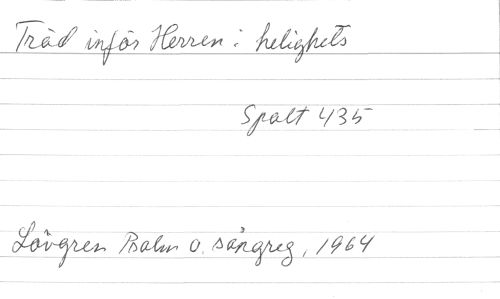 Träd inför Herren i helighets
Spalt 435
Lövgren Psalm o. sångreg, 1964